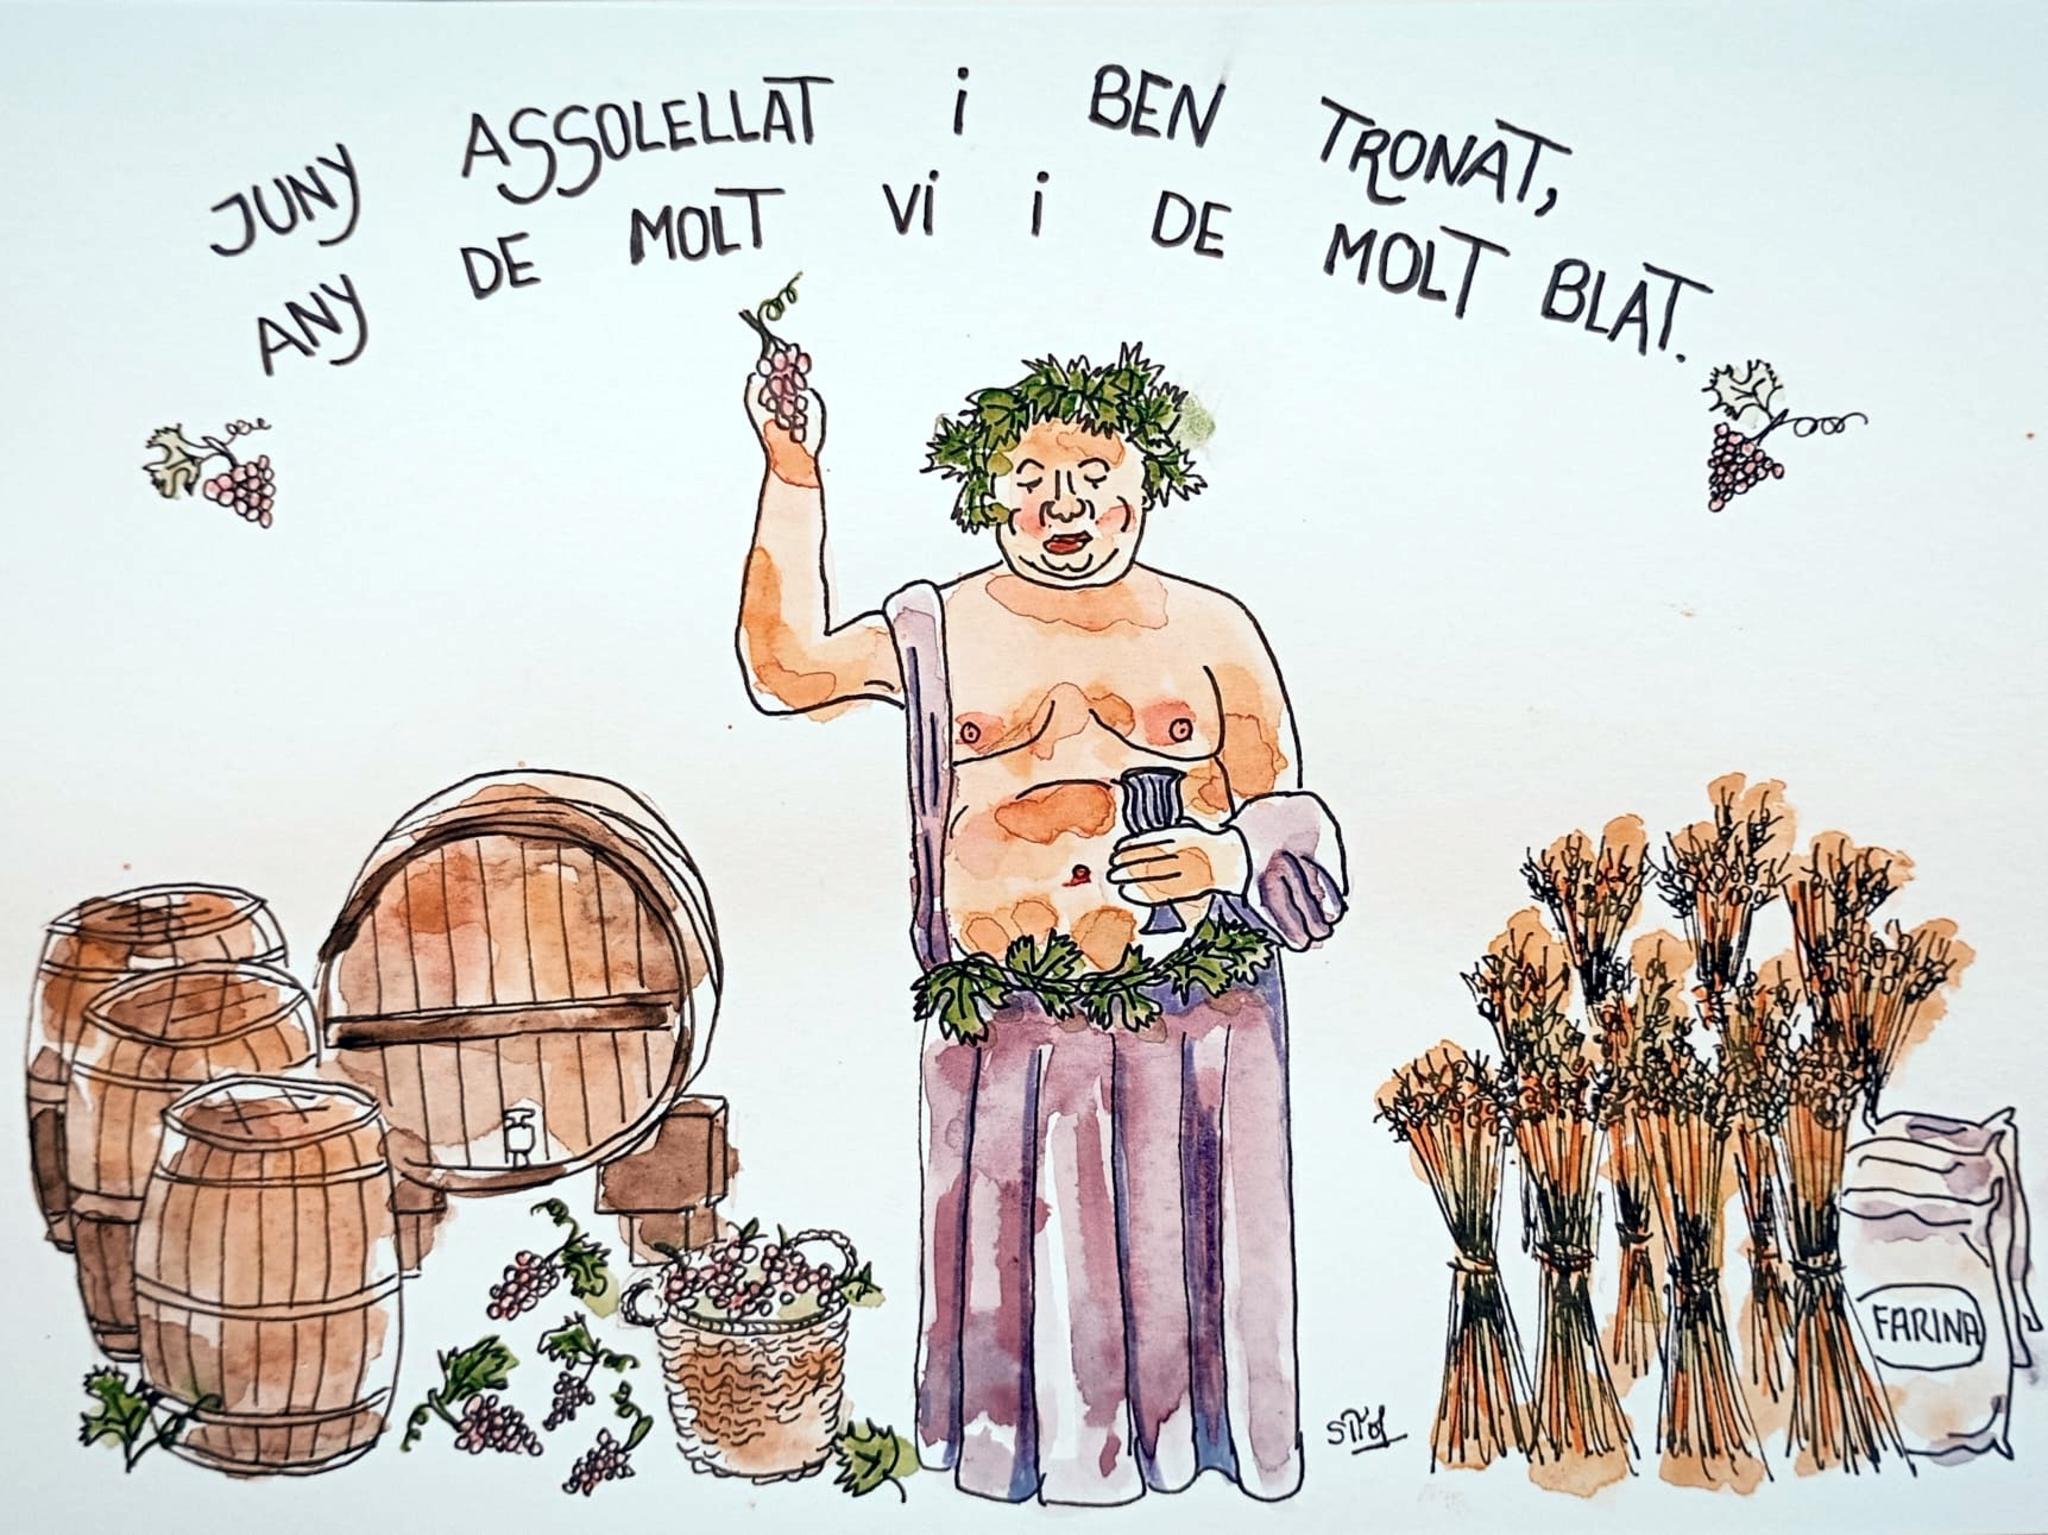 JUNY ASSOLELLAT i BEN TRONAT,
ANY DE MOLT Vi i DE MOLT BLAT.
FARINA